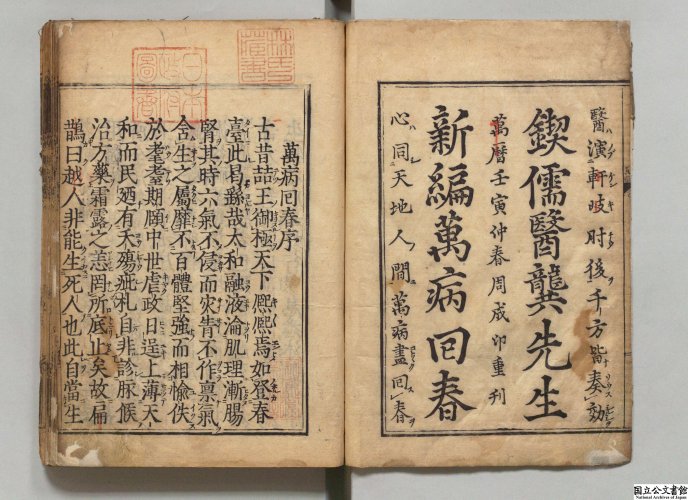 醫演軒岐肘後千方皆奏効
鍥儒醫龔先生
萬曆壬寅仲春周成卯重刊
新編萬病回春
心同天地人間萬病盡回春
林氏藏書
日本政府圖書
萬病回春序
古昔喆王御極天下熈熈焉如登春
臺此曷繇哉太和融液淪肌理漸腸
腎其時六氣不侵而灾眚不作禀氣
含生之屬靡不百體堅強而相愉佚
於耄耋期頤中世虐政日逞上薄天
和而民廼有夭殤疵札自非診脉候
治方藥霜露之恙罔所底止矣故扁
鵲曰越人非能生死人也此自當生
国立公文書館
National Archives of Japan